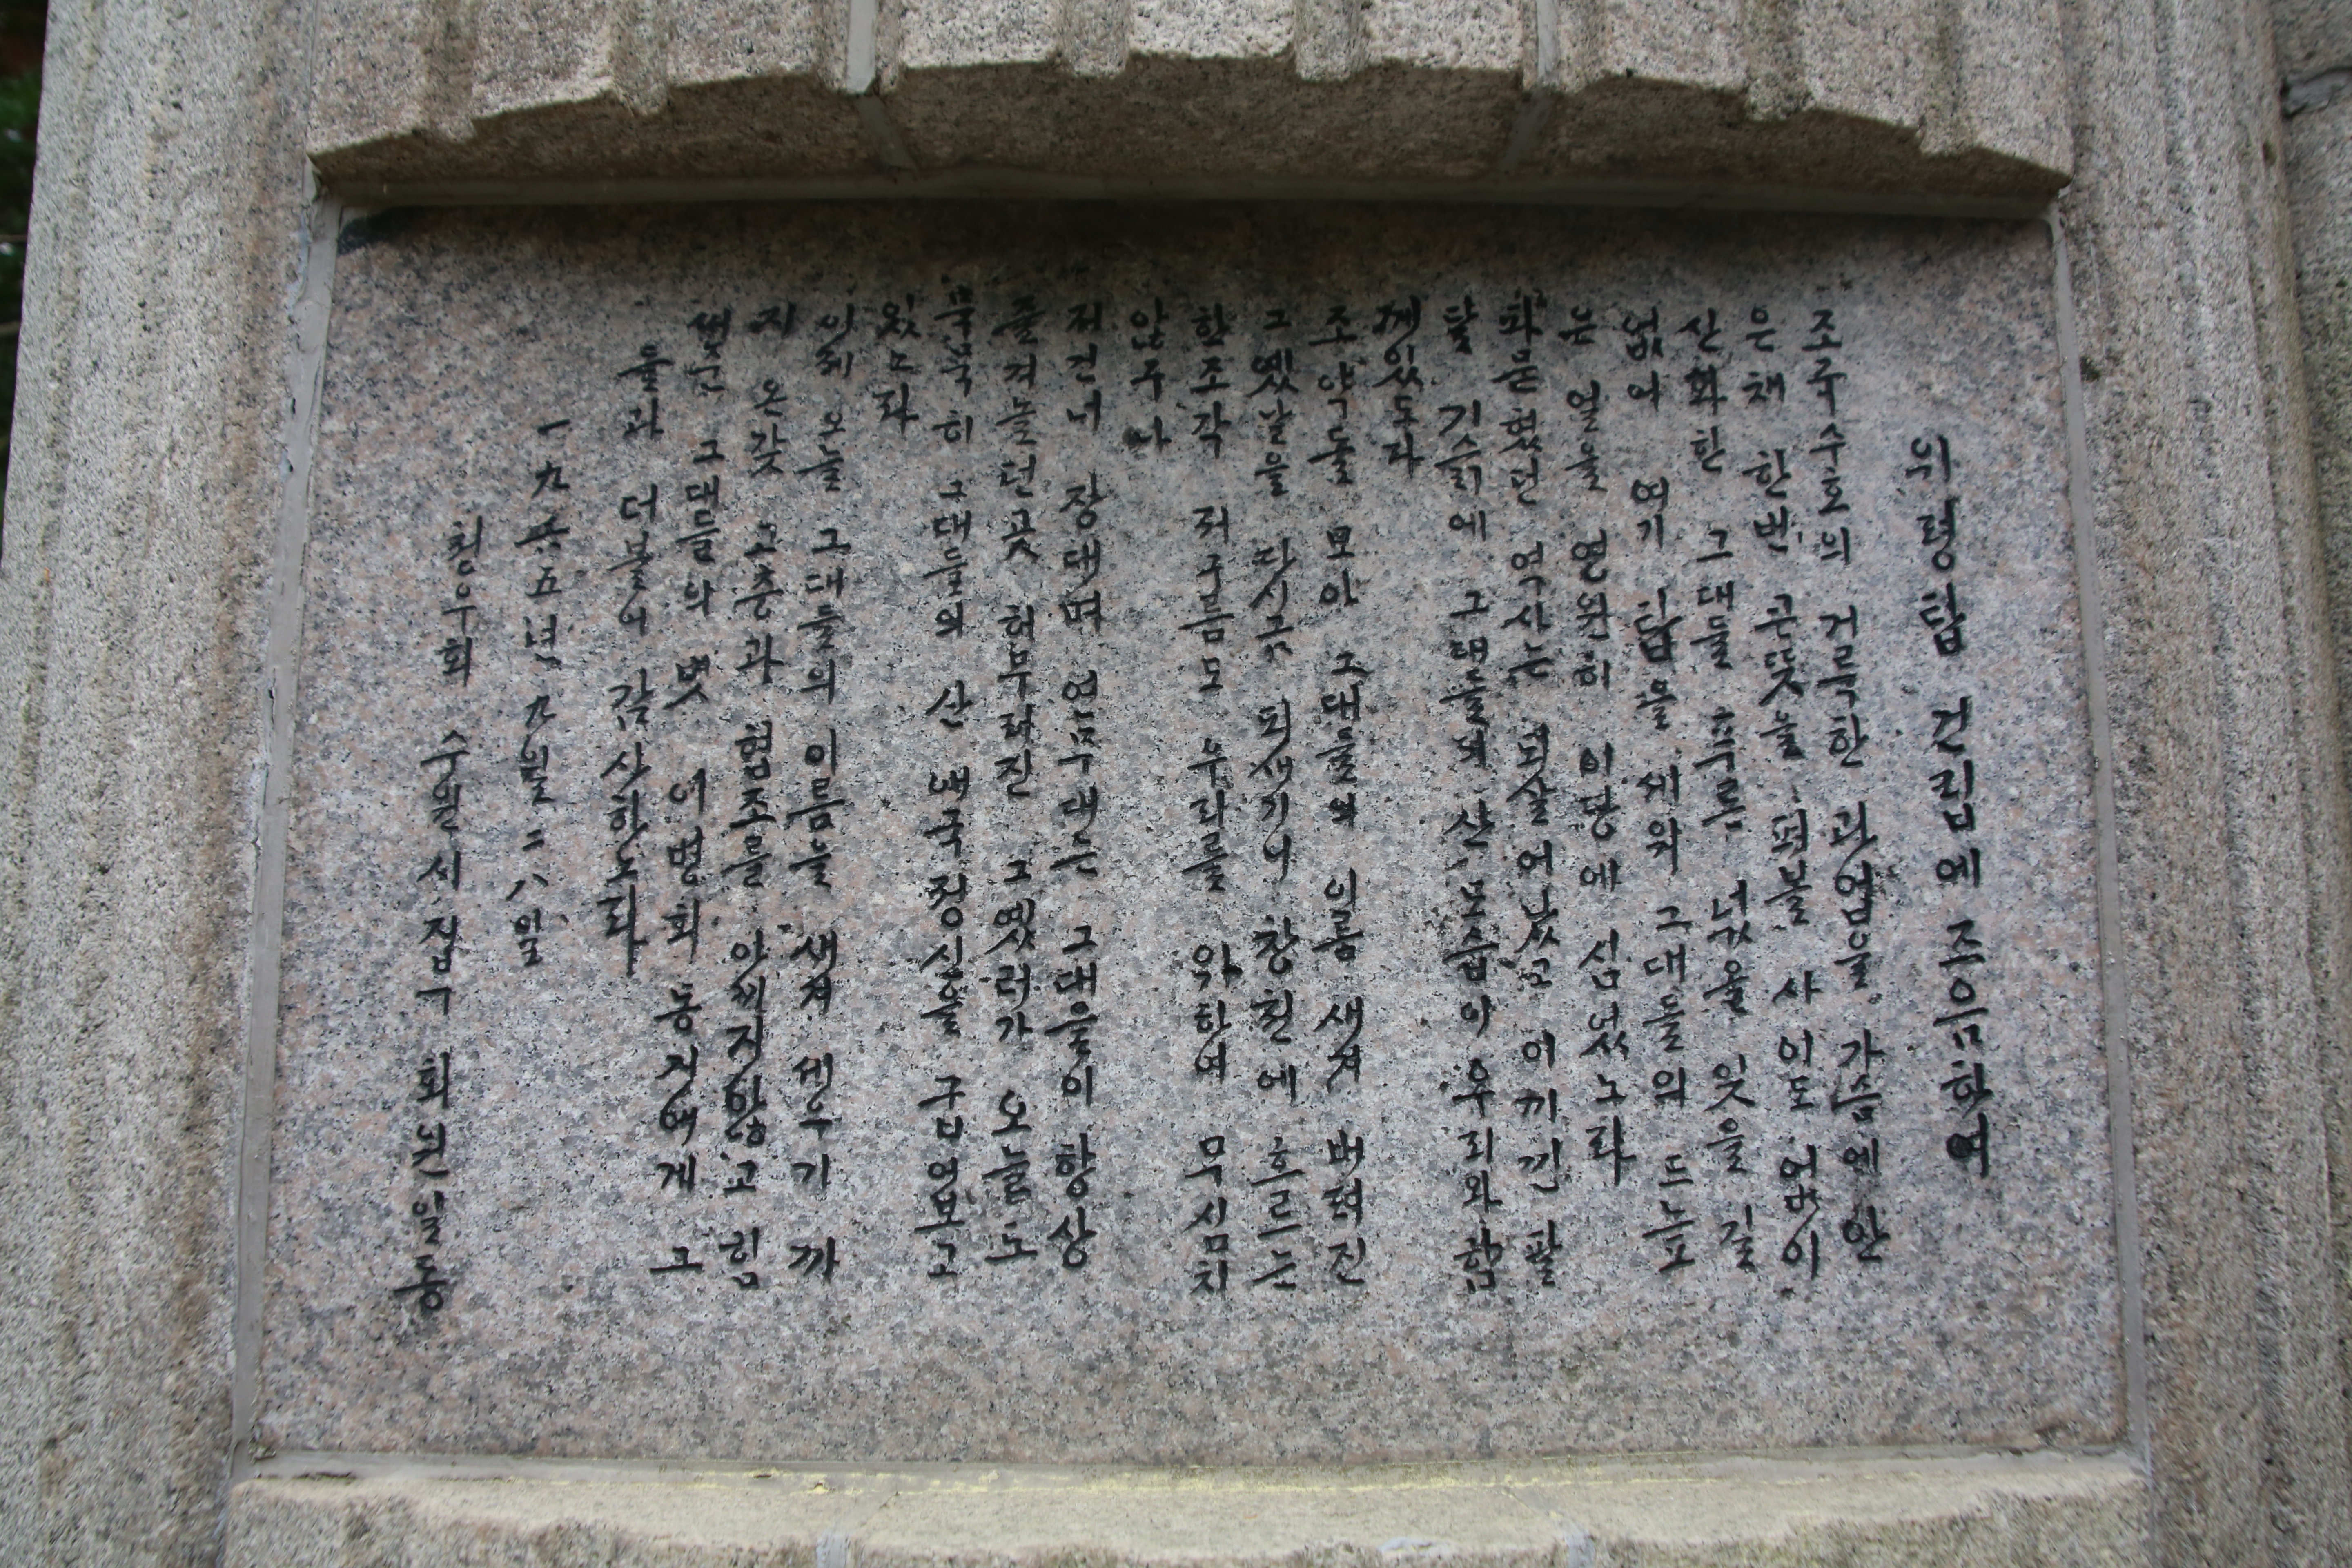 위령탑 건립에 즈음하여
조국수호의 거룩한 과업을 가슴에 안
은채 한번 큰뜻을 펴볼 사이도 없이
산화한 그대들 호국 넋을 잊을 길
없어 여기 탑을 세워 그대들의 드높
은 얼을 영원히 이땅에 심었노라
파묻혔던 역사는 되살어났고 이끼낀 팔
달 기슭에 그대들의 산 모습이 우리와 함
께있도다
조약돌 모아 그대들의 이름 새겨 버려진
그 옛날을 다시금 되새기어 창천에 흐르는
한조각 저구름도 우리를 위하여 무심치
않구나
저건너 장대며 연무대는 그대들이 항상
즐겨놀던곳 허무러진 그 옛터가 오늘도
묵묵히 그대들의 산 애국정신을 굽어보고
있노라
이제 오늘 그대들의 이름을 새겨 세우기 까
지 온갖 고충과 협조를 아끼지않고 힘
써준 그대들의 벗 여명회 동지에게 그
들과 더불어 감사한도다
一九六五년 九월 二八일
친우회 수원시 집구 회원일동